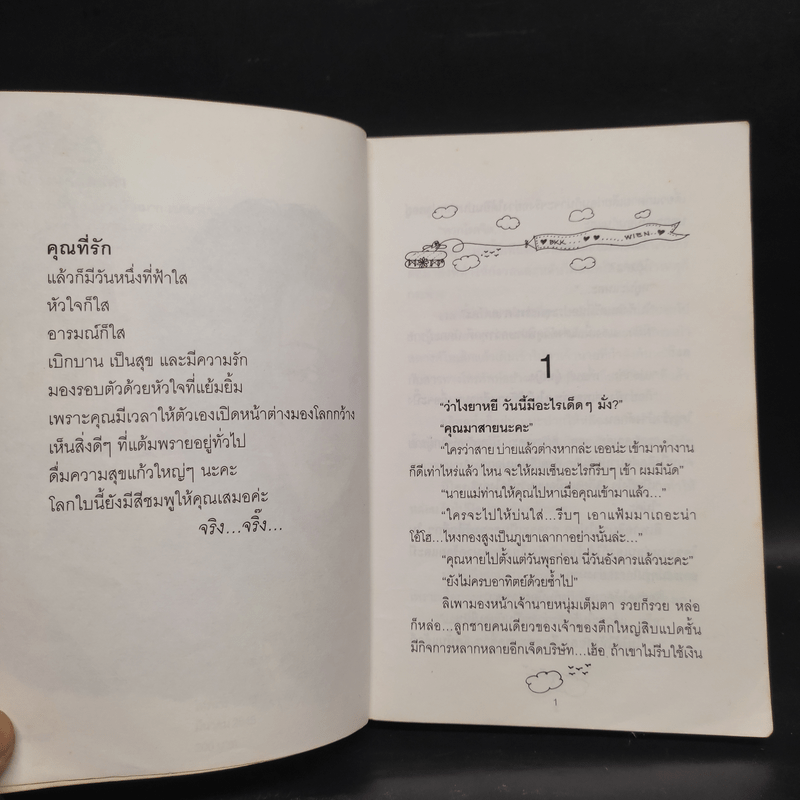 คุณที่รัก
แล้วก็มีวันหนึ่งที่ฟ้าใส
หัวใจก็ใส
อารมณ์ก็ใส
เบิกบาน เป็นสุข และมีความรัก
มองรอบตัวด้วยหัวใจที่แย้มยิ้ม
เพราะคุณมีเวลาให้ตัวเองเปิดหน้าต่างมองโลกกว้าง
เห็นสิ่งดีๆ ที่แต้มพรายอยู่ทั่วไป
ดื่มความสุขแก้วใหญ่ๆ นะคะ
โลกใบนี้ยังมีสีชมพูให้คุณเสมอค่ะ
จริง...จริ๊ง...
BKK......WIEN..
1
"ว่าไงยาหยี วันนี้มีอะไรเด็ดๆ มั่ง?"
"คุณมาสายนะคะ"
"ใครว่าสาย บ่ายแล้วต่างหากล่ะ เออน่ะ เข้ามาทำงาน
ก็ดีเท่าไหร่แล้ว ไหน จะให้ผมเซ็นอะไรก็รีบๆ เข้า ผมมีนัด"
"นายแม่ท่านให้คุณไปหาเมื่อคุณเข้ามาแล้ว..."
"ใครจะไปให้บ่นใส่...รีบๆ เอาแฟ้มมาเถอะน่า
โอ้โฮ...ไหงกองสูงเป็นภูเขาเลากาอย่างนั้นล่ะ..."
"คุณหายไปตั้งแต่วันพุธก่อน นี่วันอังคารแล้วนะคะ"
"ยังไม่ครบอาทิตย์ด้วยซ้ำไป"
ลิเพามองหน้าเจ้านายหนุ่มเต็มตา รวยก็รวย หล่อ
ก็หล่อ...ลูกชายคนเดียวของเจ้าของตึกใหญ่สิบแปดชั้น
มีกิจการหลากหลายอีกเจ็ดบริษัท...เฮ้อ ถ้าเขาไม่รีบใช้เงิน
1